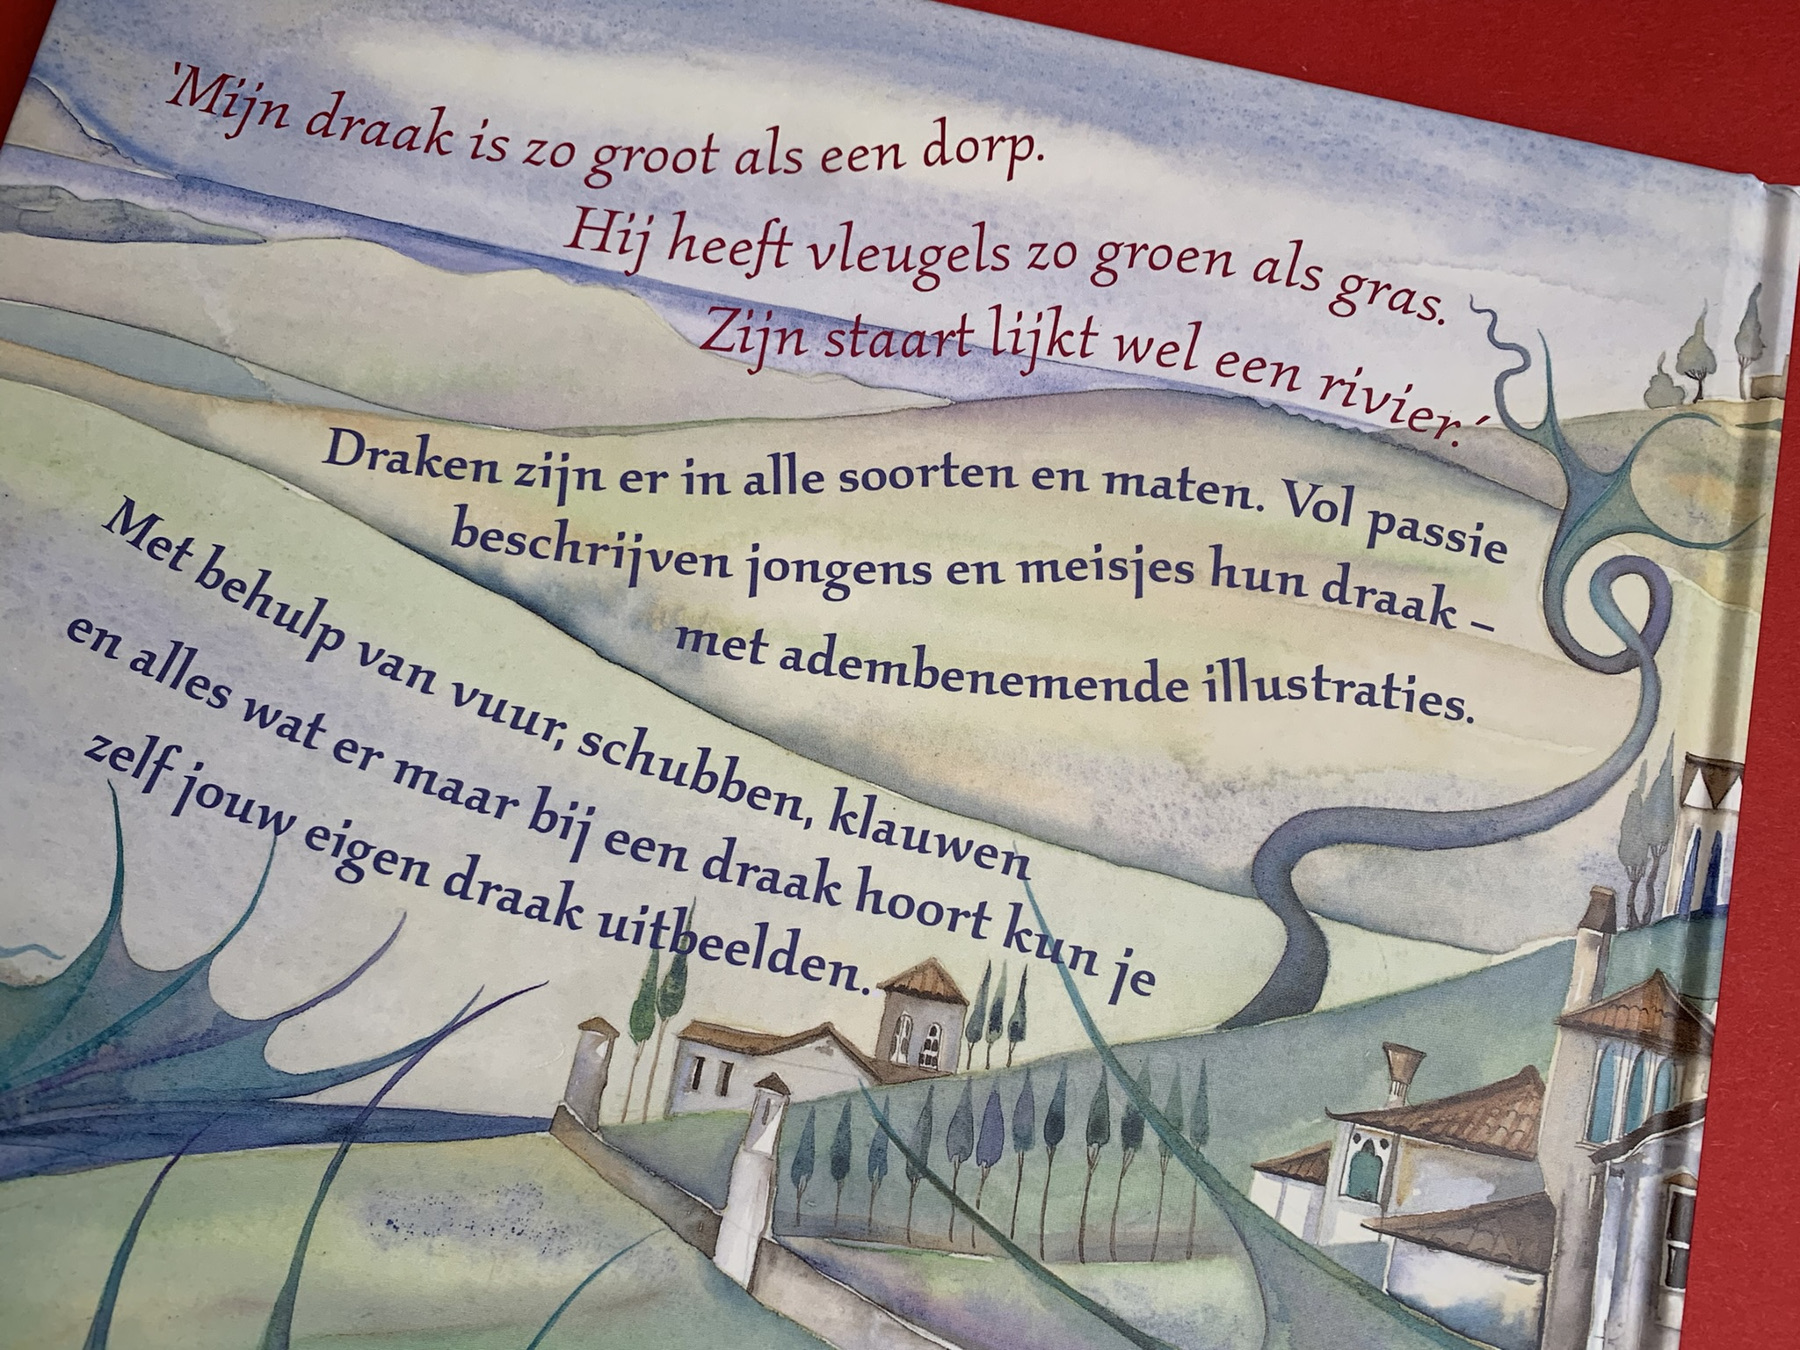 'Mijn draak is zo groot als een dorp.
Hij heeft vleugels zo groen als gras.
Zijn staart lijkt wel een rivier.'
Draken zijn er in alle soorten en maten. Vol passie
beschrijven jongens en meisjes hun draak –
met adembenemende illustraties.
Met behulp van vuur, schubben, klauwen
en alles wat er maar bij een draak hoort kun je
zelf jouw eigen draak uitbeelden.